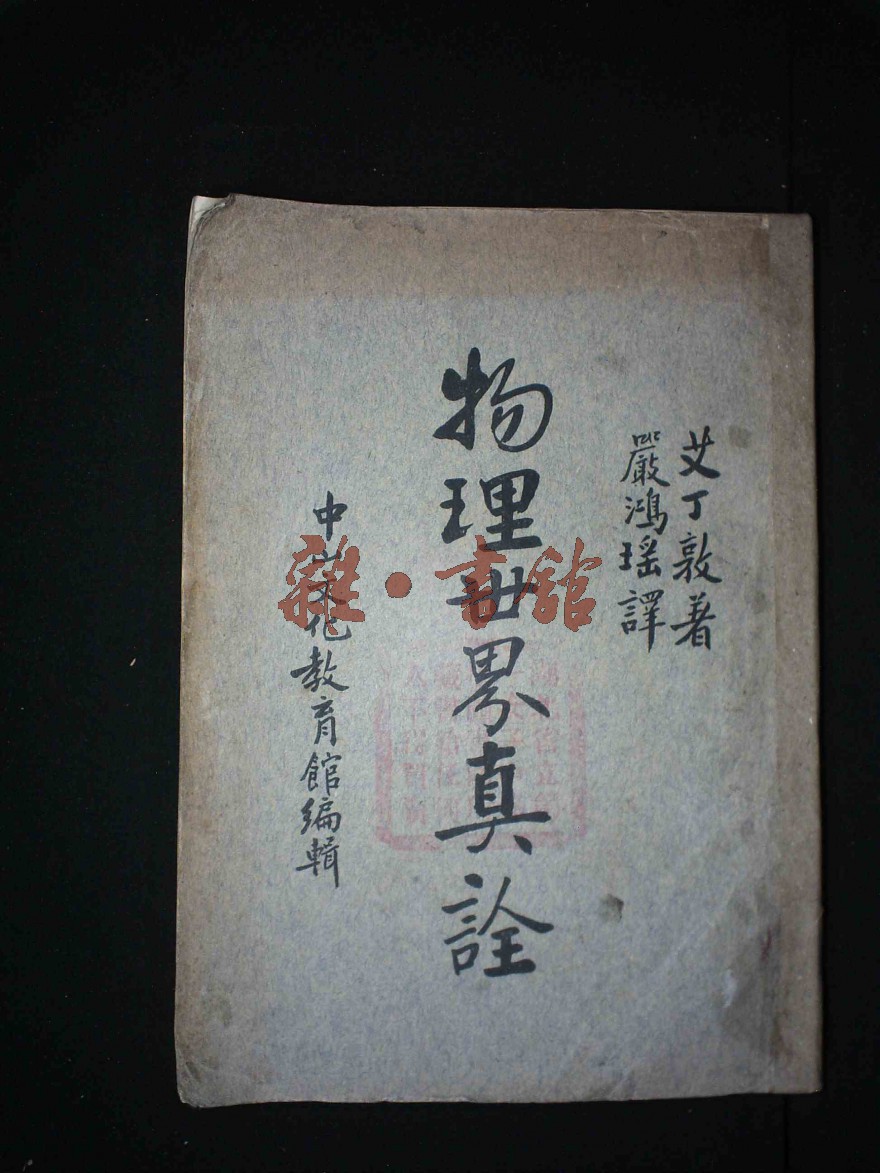 艾丁敦著
嚴鴻瑶譯
物理世界真詮
中山文化教育館編輯
雜·書館